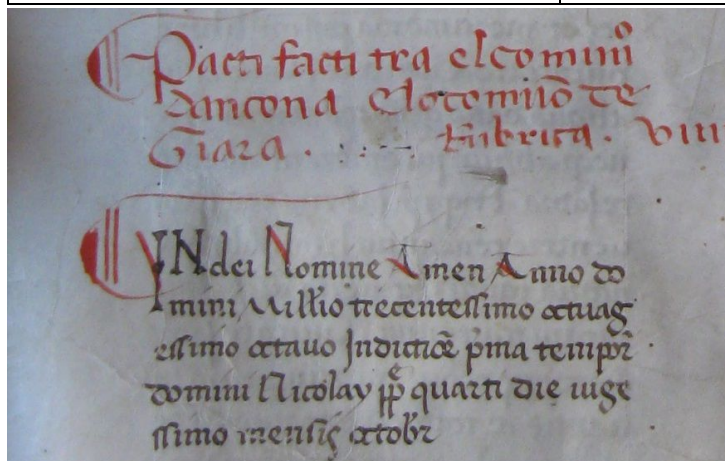 Pacti facti tra el comunō
dancona elo comunō de
Giara . Rubrica . VIII
IN dei Nomine Amen Anno do
mini Mill'io trecentessimo octuag
essimo octauo Indictiōe p̄ma tempor̄
domini Nicolay pp̄e quarti die uige
ssimo mensis octobr̄